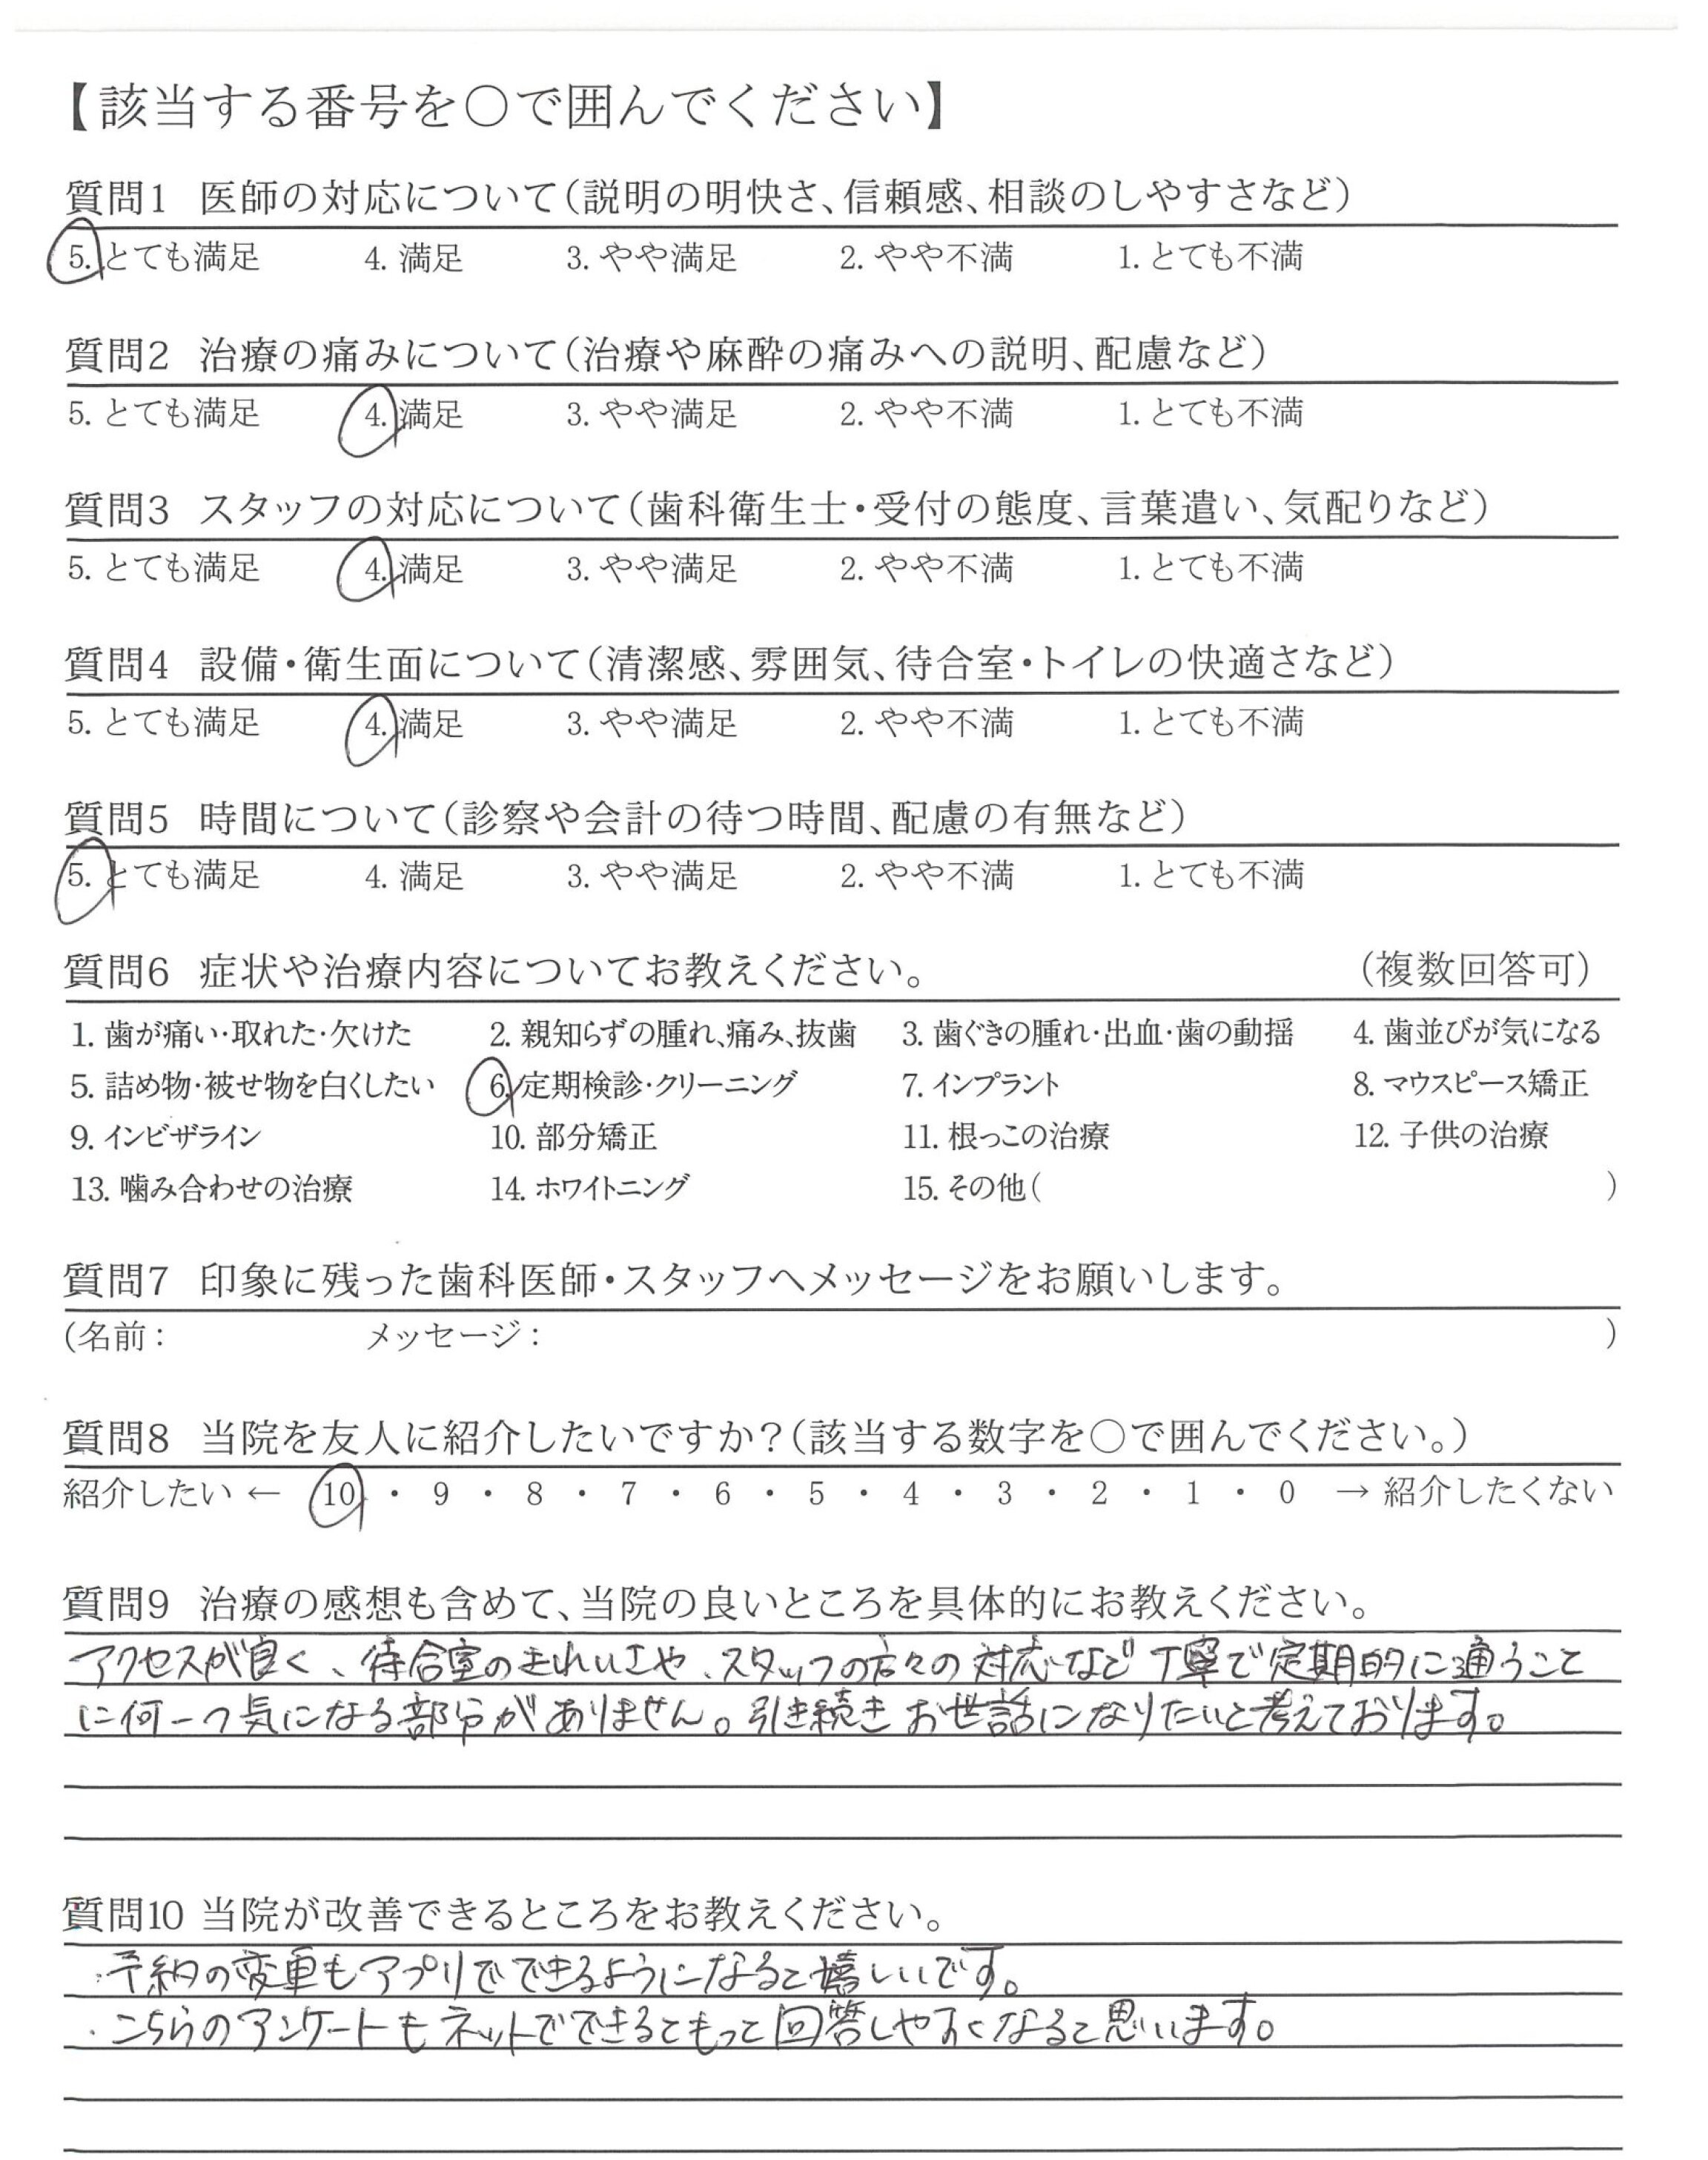 【該当する番号を○で囲んでください】
質問1 医師の対応について(説明の明快さ、信頼感、相談のしやすさなど)
5. とても満足 4. 満足 3. やや満足 2. やや不満 1. とても不満
質問2 治療の痛みについて(治療や麻酔の痛みへの説明、配慮など)
5. とても満足 4. 満足 3. やや満足 2. やや不満 1. とても不満
質問3 スタッフの対応について(歯科衛生士・受付の態度、言葉遣い、気配りなど)
5. とても満足 4. 満足 3. やや満足 2. やや不満 1. とても不満
質問4 設備・衛生面について(清潔感、雰囲気、待合室・トイレの快適さなど)
5. とても満足 4. 満足 3. やや満足 2. やや不満 1. とても不満
質問5 時間について(診察や会計の待つ時間、配慮の有無など)
5. とても満足 4. 満足 3. やや満足 2. やや不満 1. とても不満
質問6 症状や治療内容についてお教えください。 (複数回答可)
1. 歯が痛い・取れた・欠けた 2. 親知らずの腫れ、痛み、抜歯 3. 歯ぐきの腫れ・出血・歯の動揺 4. 歯並びが気になる
5. 詰め物・被せ物を白くしたい 6. 定期検診・クリーニング 7. インプラント 8. マウスピース矯正
9. インビザライン 10. 部分矯正 11. 根っこの治療 12. 子供の治療
13. 噛み合わせの治療 14. ホワイトニング 15. その他( )
質問7 印象に残った歯科医師・スタッフへメッセージをお願いします。
(名前: メッセージ: )
質問8 当院を友人に紹介したいですか?(該当する数字を○で囲んでください。)
紹介したい ← 10 ・ 9 ・ 8 ・ 7 ・ 6 ・ 5 ・ 4 ・ 3 ・ 2 ・ 1 ・ 0 → 紹介したくない
質問9 治療の感想も含めて、当院の良いところを具体的にお教えください。
アクセスが良く、待合室のきれいさや、スタッフの方々の対応など丁寧で定期的に通うこと
に何一つ気になる部分がありません。引き続きお世話になりたいと考えております。
質問10 当院が改善できるところをお教えください。
・予約の変更もアプリでできるようになると嬉しいです。
・こちらのアンケートもネットでできるともっと回答しやすくなると思います。